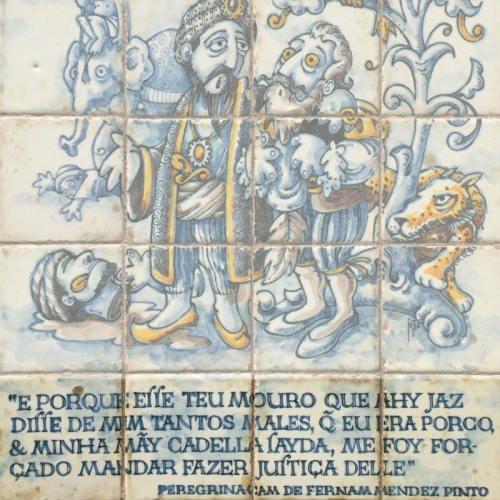 "E PORQUE ESSE TEU MOURO QUE AHY JAZ
DISSE DE MIM TANTOS MALES, Q̃ EU ERA PORCO,
& MINHA MÃY CADELLA SAYDA, ME FOY FOR-
ÇADO MANDAR FAZER JUSTIÇA DELLE"
PEREGRINAÇAM DE FERNAM MENDEZ PINTO